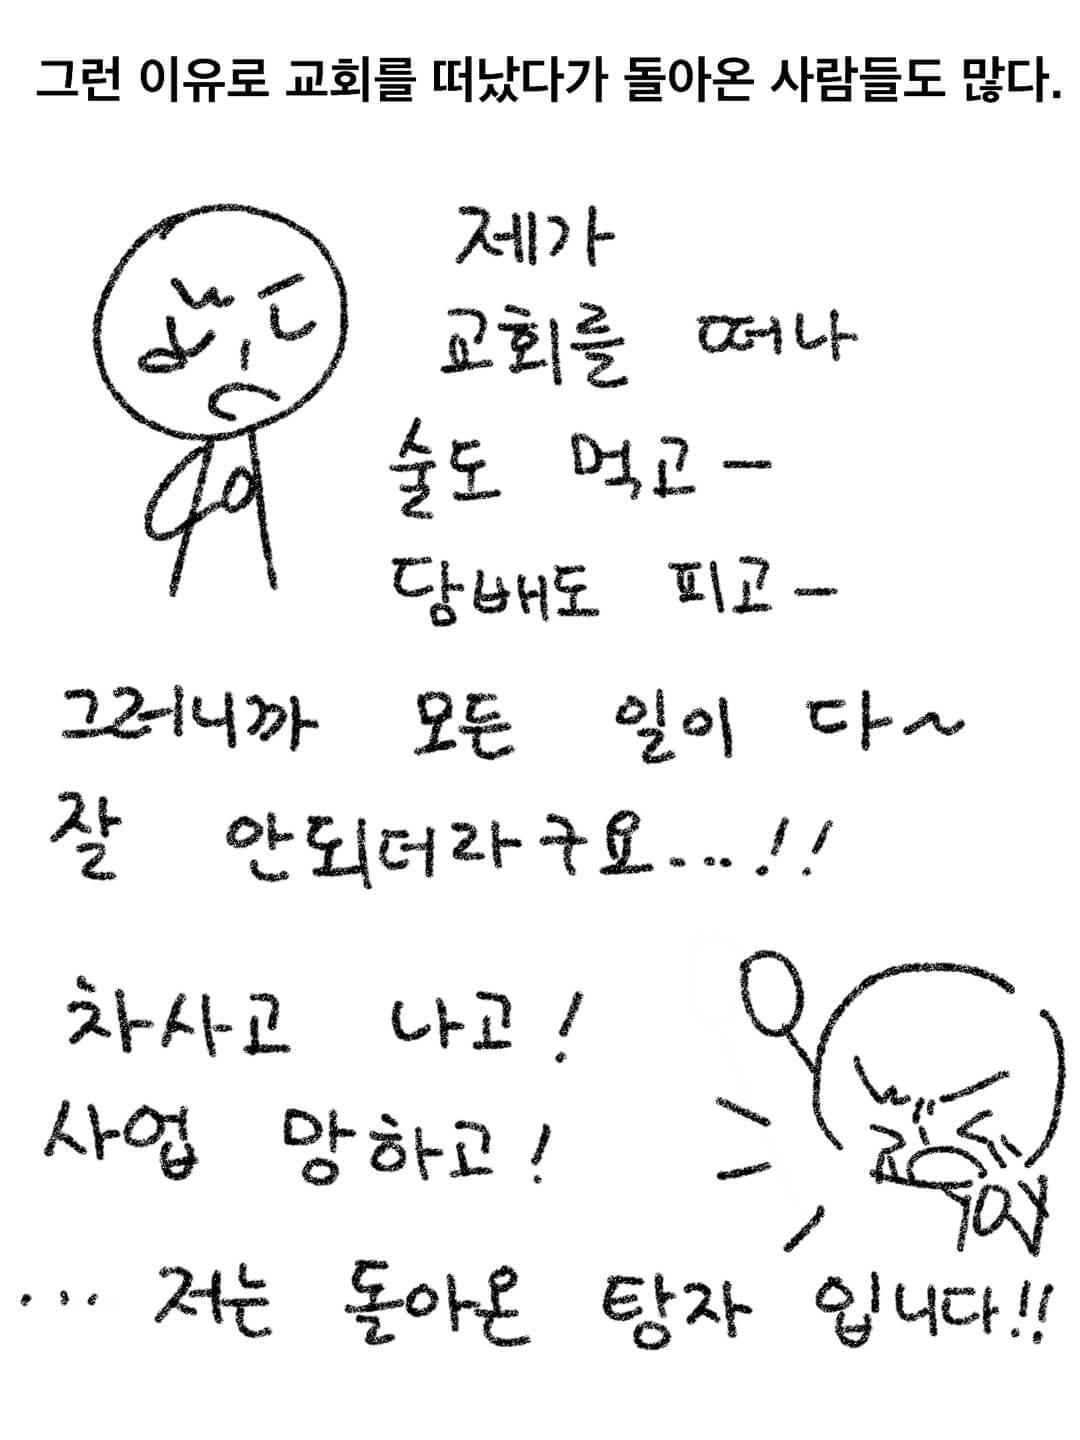 그런 이유로 교회를 떠났다가 돌아온 사람들도 많다.
제가
교회를 떠나
술도 먹고-
담배도 피고-
그러니까 모든 일이 다~
잘 안되더라구요...!!
차사고 나고!
사업 망하고!
... 저는 돌아온 탕자 입니다!!